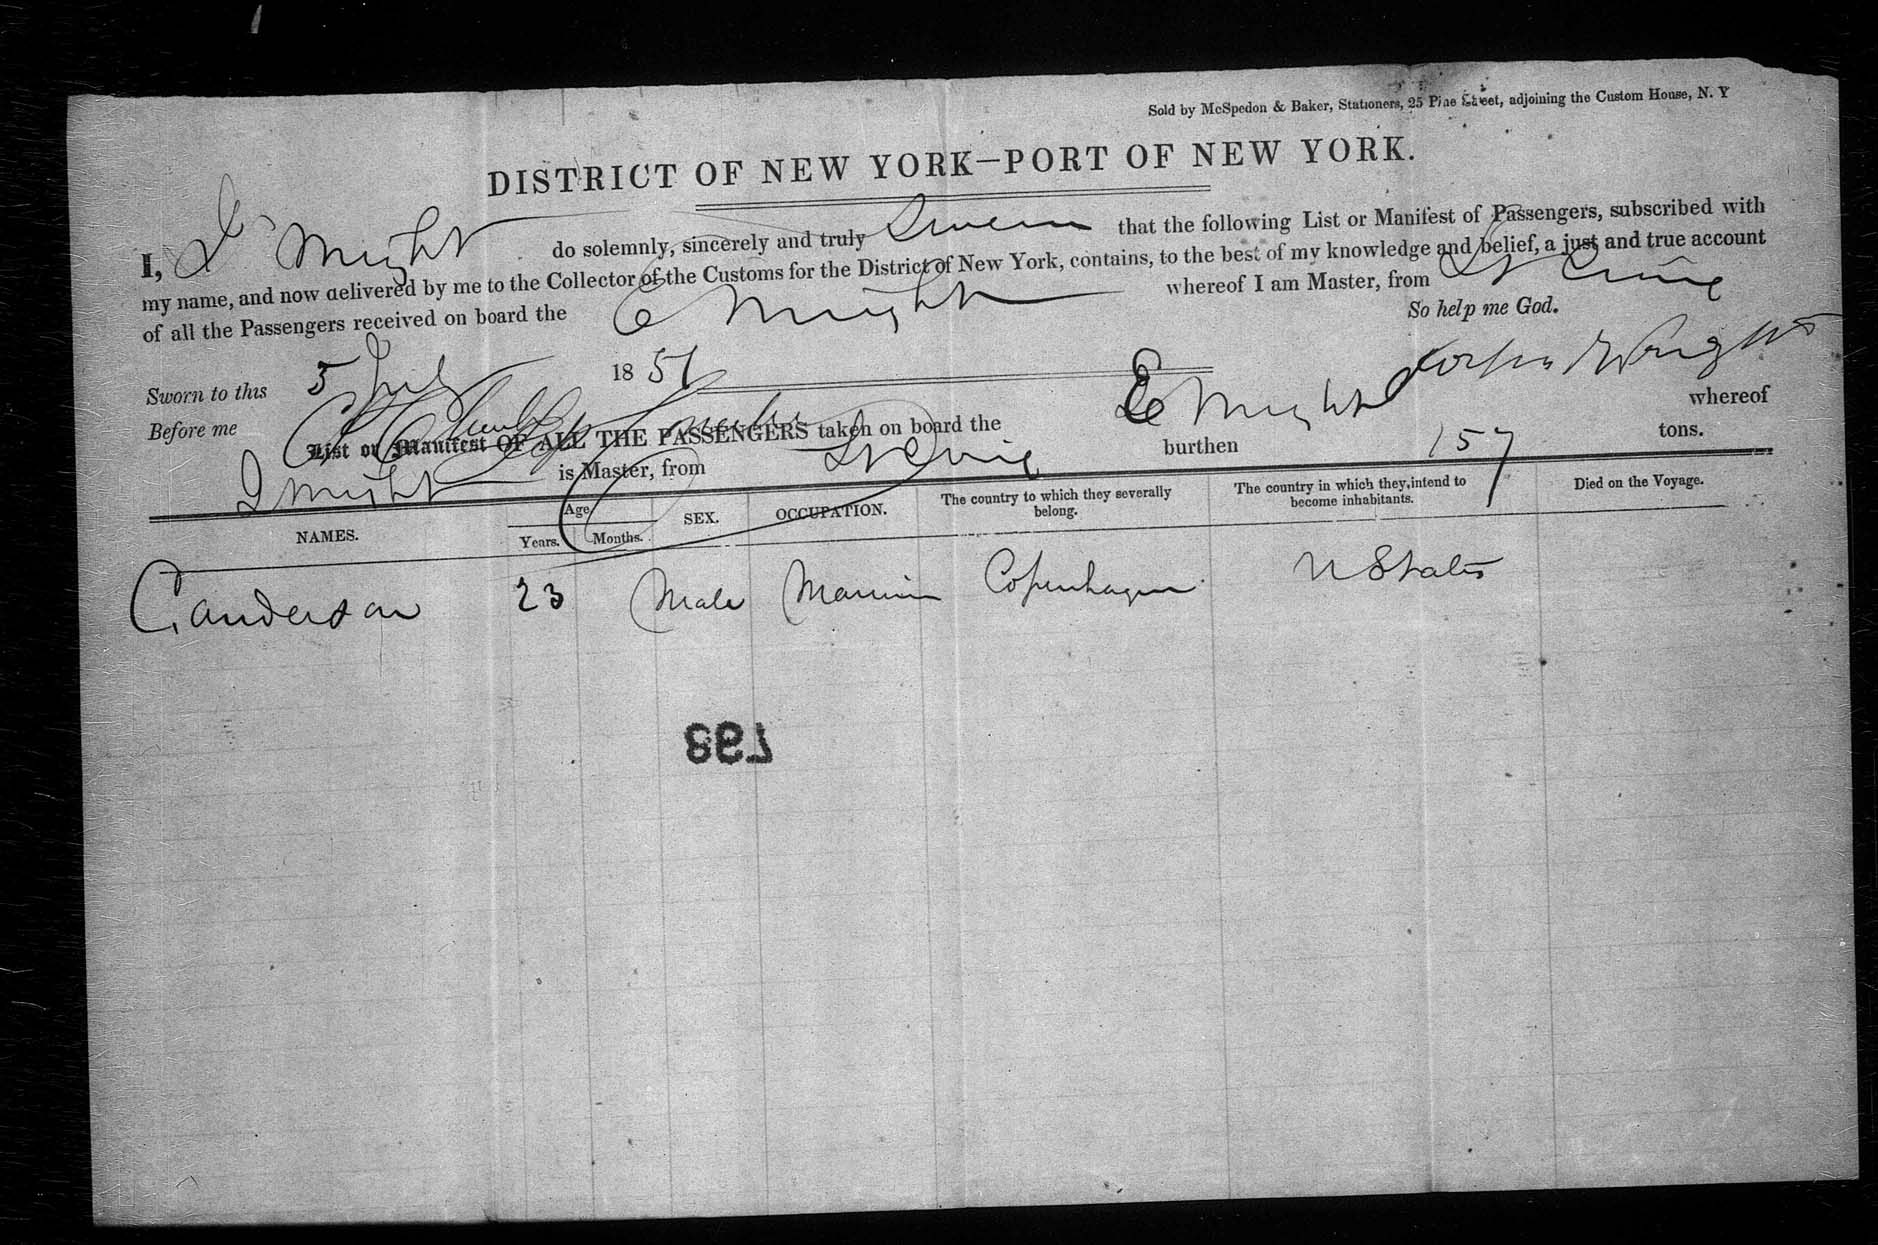 Sold by McSpedon & Baker, Stationers, 25 Pine Street, adjoining the Custom House, N. Y
DISTRICT OF NEW YORK—PORT OF NEW YORK.
I, J Wright do solemnly, sincerely and truly Swear that the following List or Manifest of Passengers, subscribed with
my name, and now delivered by me to the Collector of the Customs for the District of New York, contains, to the best of my knowledge and belief, a just and true account
of all the Passengers received on board the E Wright whereof I am Master, from St Croix
So help me God.
Sworn to this 5 July 1851
Before me
Wright
List or Manifest OF ALL THE PASSENGERS taken on board the E Wright whereof
J Wright is Master, from St Croix burthen 157 tons.
NAMES. Age Years. Months. SEX. OCCUPATION. The country to which they severally belong. The country in which they intend to become inhabitants. Died on the Voyage.
C. anderson 23 Male Marine Copenhagen U States
867